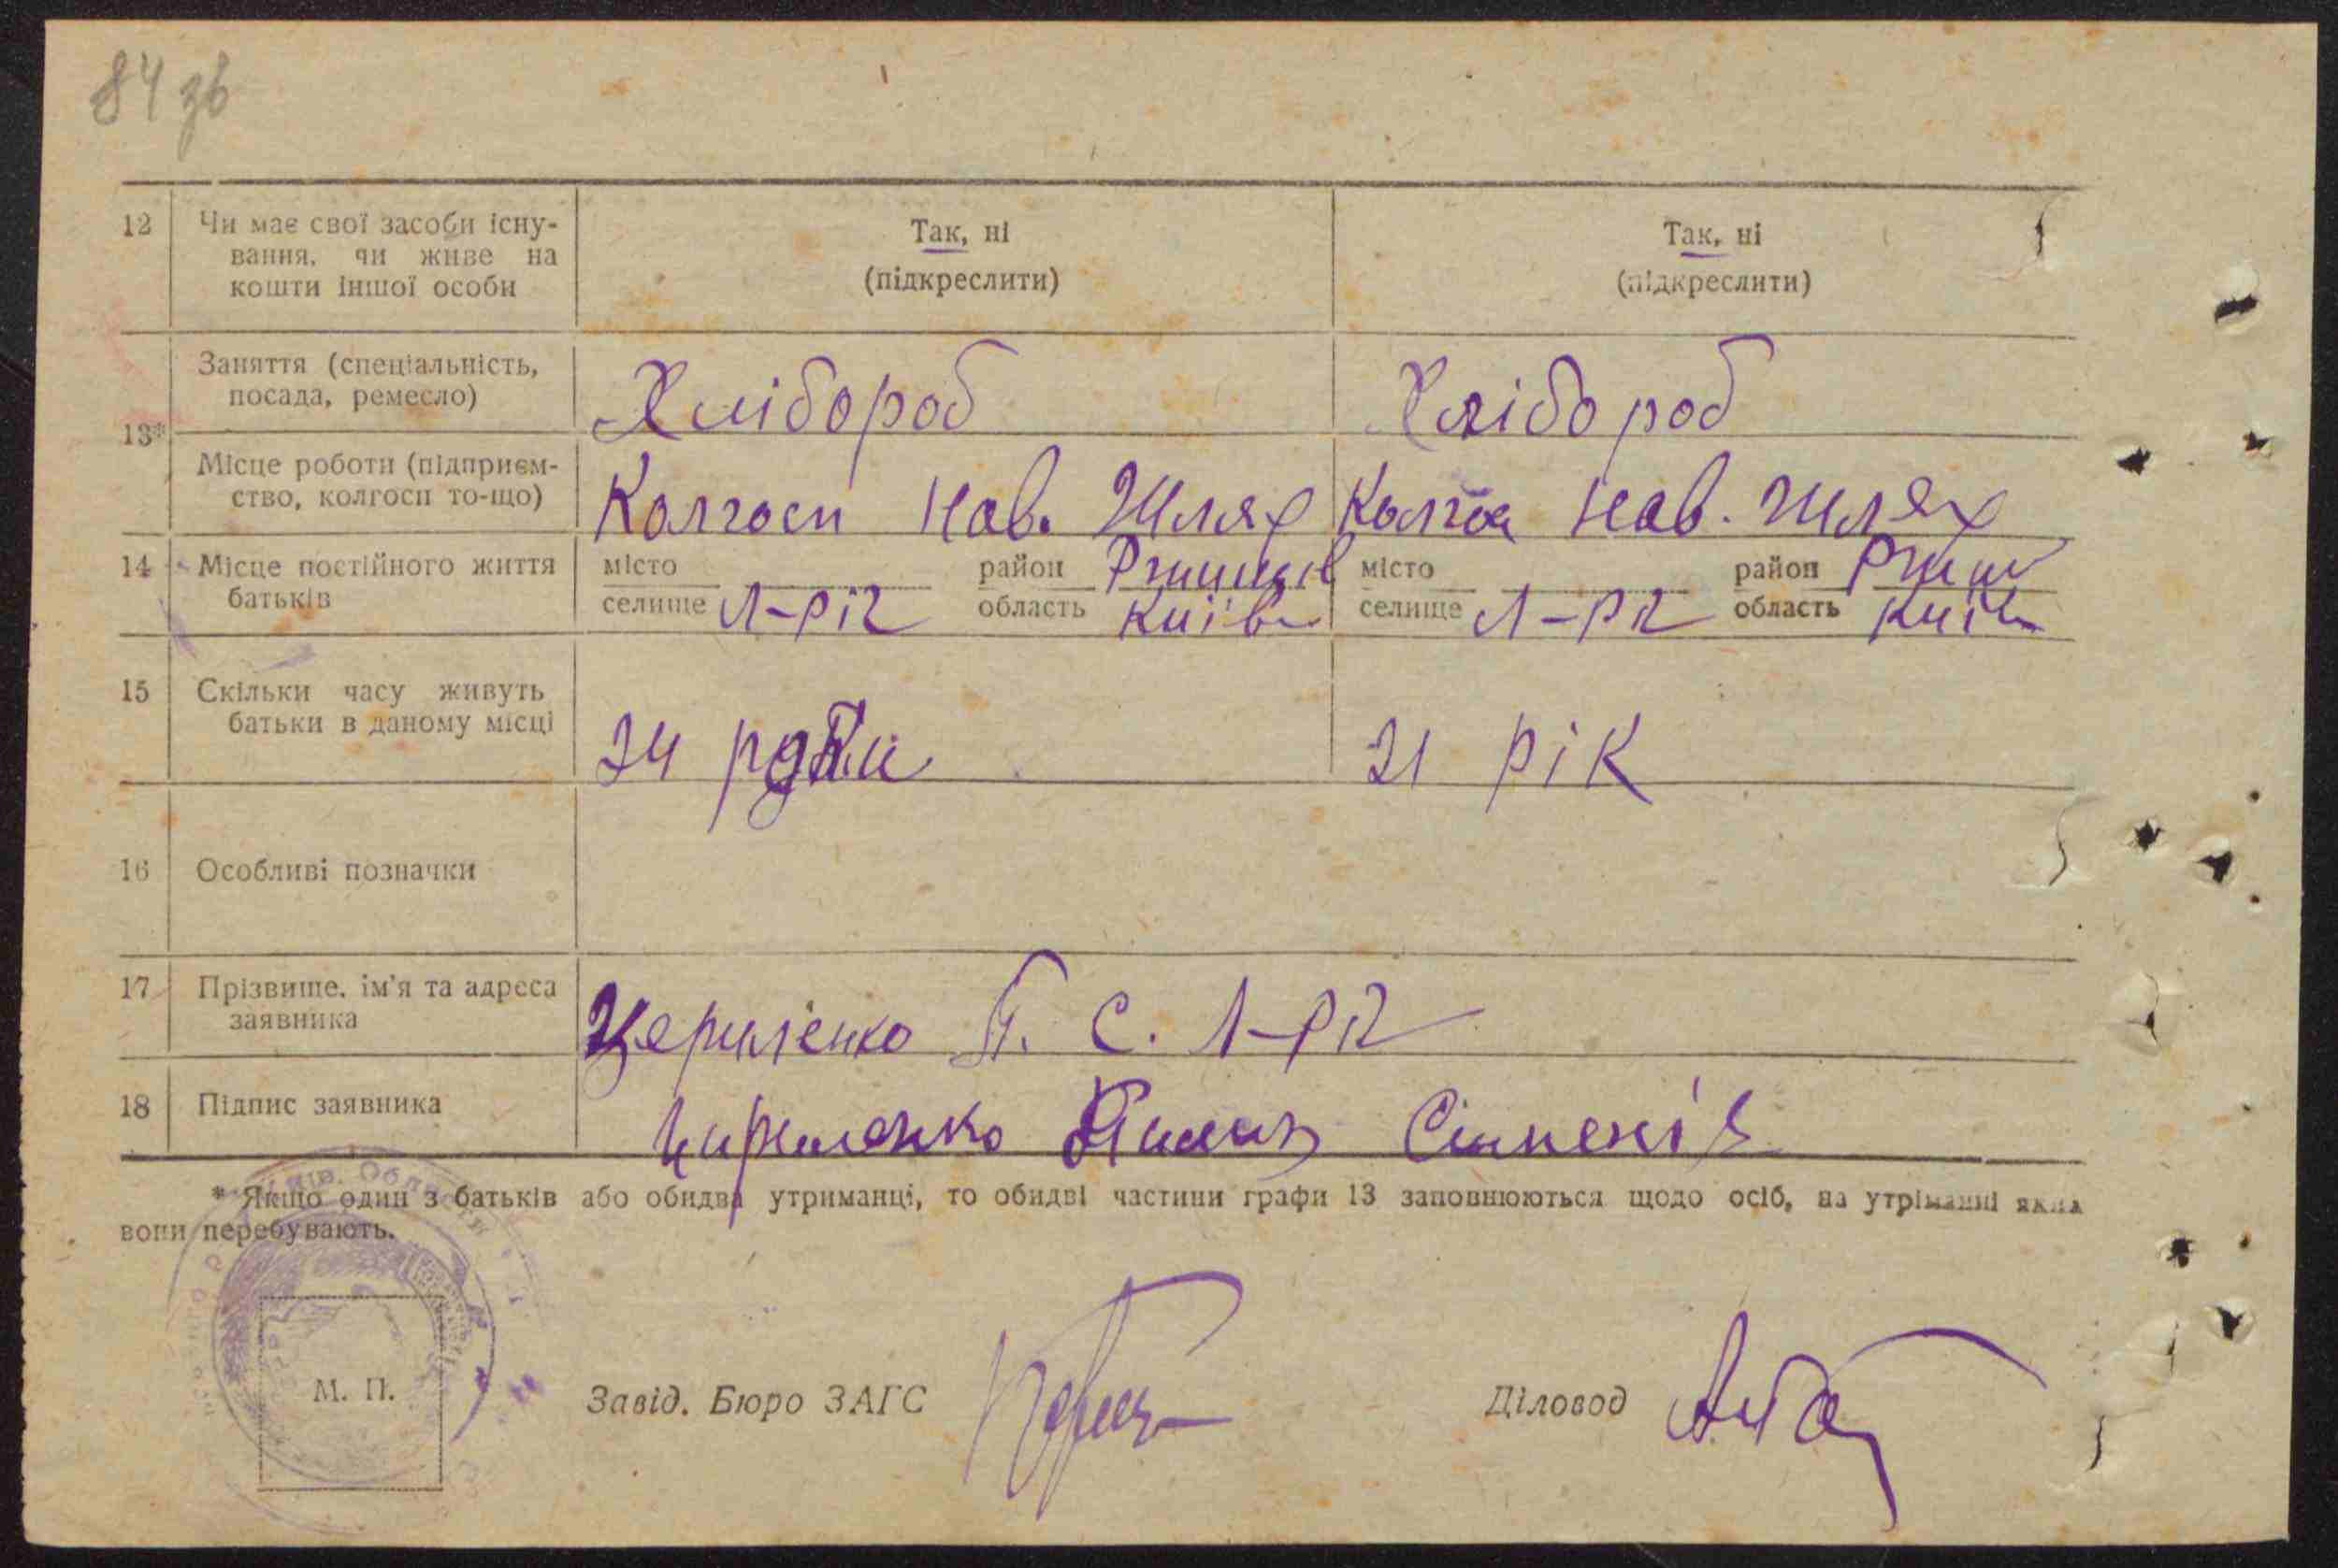 84 зв
12 Чи має свої засоби існу- Так, ні Так, ні
вання, чи живе на (підкреслити) (підкреслити)
кошти іншої особи
13* Заняття (спеціальність, Хлібороб Хлібороб
посада, ремесло)
Місце роботи (підприєм- Колгосп Нов. Шлях Нов. Шлях
ство, колгосп то-що)
14 Місце постійного життя місто район місто район
батьків селище Л-ріг область Київ селище Л-ріг область Київ
15 Скільки часу живуть 24 роки 21 рік
батьки в даному місці
16 Особливі позначки
17 Прізвище, ім'я та адреса П. С. Л-ріг
заявника
18 Підпис заявника
* Якщо один з батьків або обидва утриманці, то обидві частини графи 13 заповнюються щодо осіб, на утріманні яких
вони перебувають.
М. П. Завід. Бюро ЗАГС Діловод